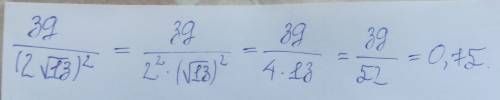 39/(2√13)² = 39/(2²·(√13)²) = 39/(4·13) = 39/52 = 0,75.